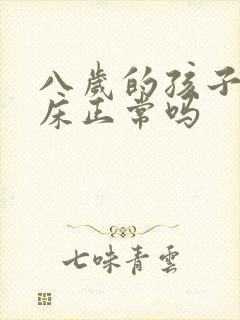 八歲的孩子
床正常吗
七味青雲